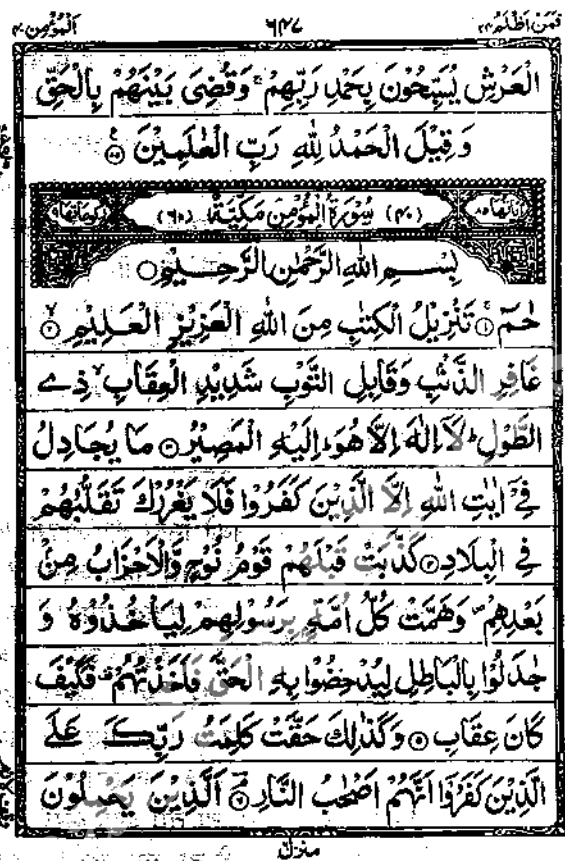 فمن اظلم ۲۴ ٦۴۷ المؤمن ۴۰
الْعَرْشِ يُسَبِّحُوْنَ بِحَمْدِ رَبِّهِمْ ۚ وَقُضِىَ بَيْنَهُمْ بِالْحَقِّ
وَقِيْلَ الْحَمْدُ لِلّٰهِ رَبِّ الْعٰلَمِيْنَ ۝
اٰيَاتُهَا ۸۵ (۴۰) سُوْرَةُ الْمُؤْمِنِ مَكِّيَّةٌ (٦۰) رُكُوْعَاتُهَا ۹
بِسْمِ اللّٰهِ الرَّحْمٰنِ الرَّحِيْمِ ۝
حٰمٓ ۝۱ تَنْزِيْلُ الْكِتٰبِ مِنَ اللّٰهِ الْعَزِيْزِ الْعَلِيْمِ ۝۲
غَافِرِ الذَّنْۢبِ وَقَابِلِ التَّوْبِ شَدِيْدِ الْعِقَابِ ۙ ذِى
الطَّوْلِ ؕ لَاۤ اِلٰهَ اِلَّا هُوَ ؕ اِلَيْهِ الْمَصِيْرُ ۝۳ مَا يُجَادِلُ
فِىْۤ اٰيٰتِ اللّٰهِ اِلَّا الَّذِيْنَ كَفَرُوْا فَلَا يَغْرُرْكَ تَقَلُّبُهُمْ
فِى الْبِلَادِ ۝۴ كَذَّبَتْ قَبْلَهُمْ قَوْمُ نُوْحٍ وَّالْاَحْزَابُ مِنْۢ
بَعْدِهِمْ ۪ وَهَمَّتْ كُلُّ اُمَّةٍۭ بِرَسُوْلِهِمْ لِيَاْخُذُوْهُ وَ
جٰدَلُوْا بِالْبَاطِلِ لِيُدْحِضُوْا بِهِ الْحَقَّ فَاَخَذْتُهُمْ ۫ فَكَيْفَ
كَانَ عِقَابِ ۝۵ وَكَذٰلِكَ حَقَّتْ كَلِمَتُ رَبِّكَ عَلَى
الَّذِيْنَ كَفَرُوْۤا اَنَّهُمْ اَصْحٰبُ النَّارِ ۝۶ اَلَّذِيْنَ يَحْمِلُوْنَ
منزل